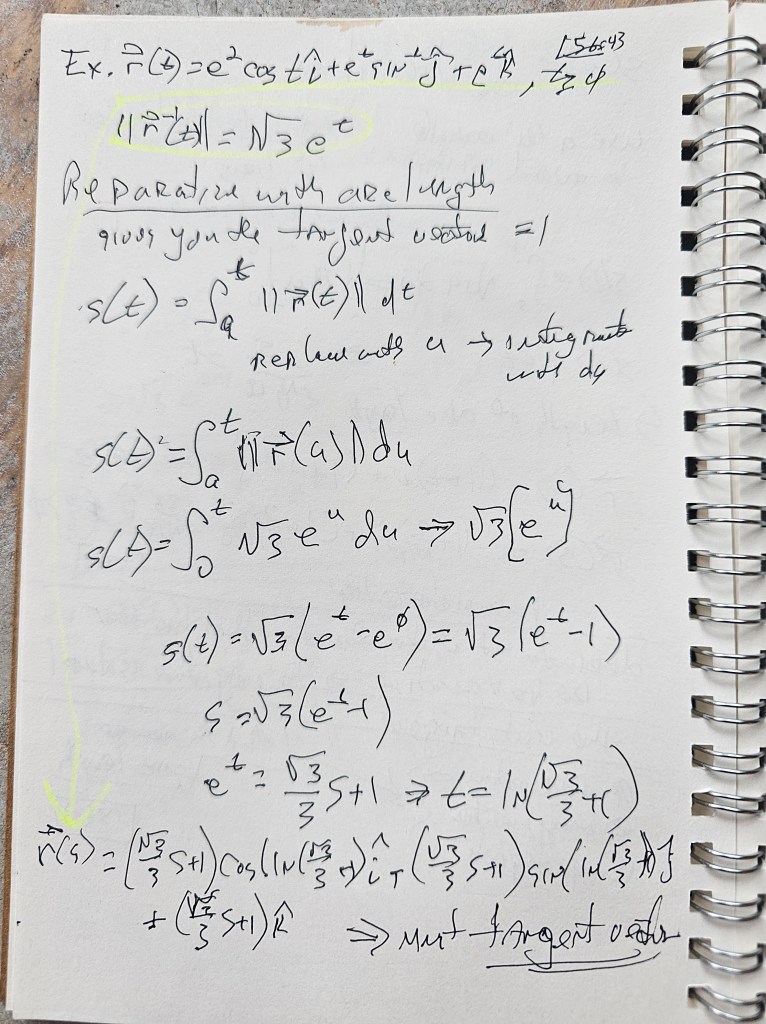 Ex. r⃗(t) = e² cos t î + e^t sin t ĵ + e^t k̂, t ≥ 0
||r⃗'(t)|| = √3 e^t
Reparatize with arc length
gives you the tangent vector = 1
s(t) = ∫_a^t ||r⃗(t)|| dt
replace with u → integrate
with du
s(t) = ∫_a^t ||r⃗(u)|| du
s(t) = ∫_0^t √3 e^u du → √3[e^u]
s(t) = √3(e^t - e^0) = √3(e^t - 1)
s = √3(e^t - 1)
e^t = √3/3 s + 1 ⇒ t = ln(√3/3 + 1)
r⃗(s) = (√3/3 s+1) cos(ln(√3/3 +1) î + (√3/3 s+1) sin(ln(√3/3 +1) ĵ
+ (√3/3 s+1) k̂ ⇒ unit tangent vector